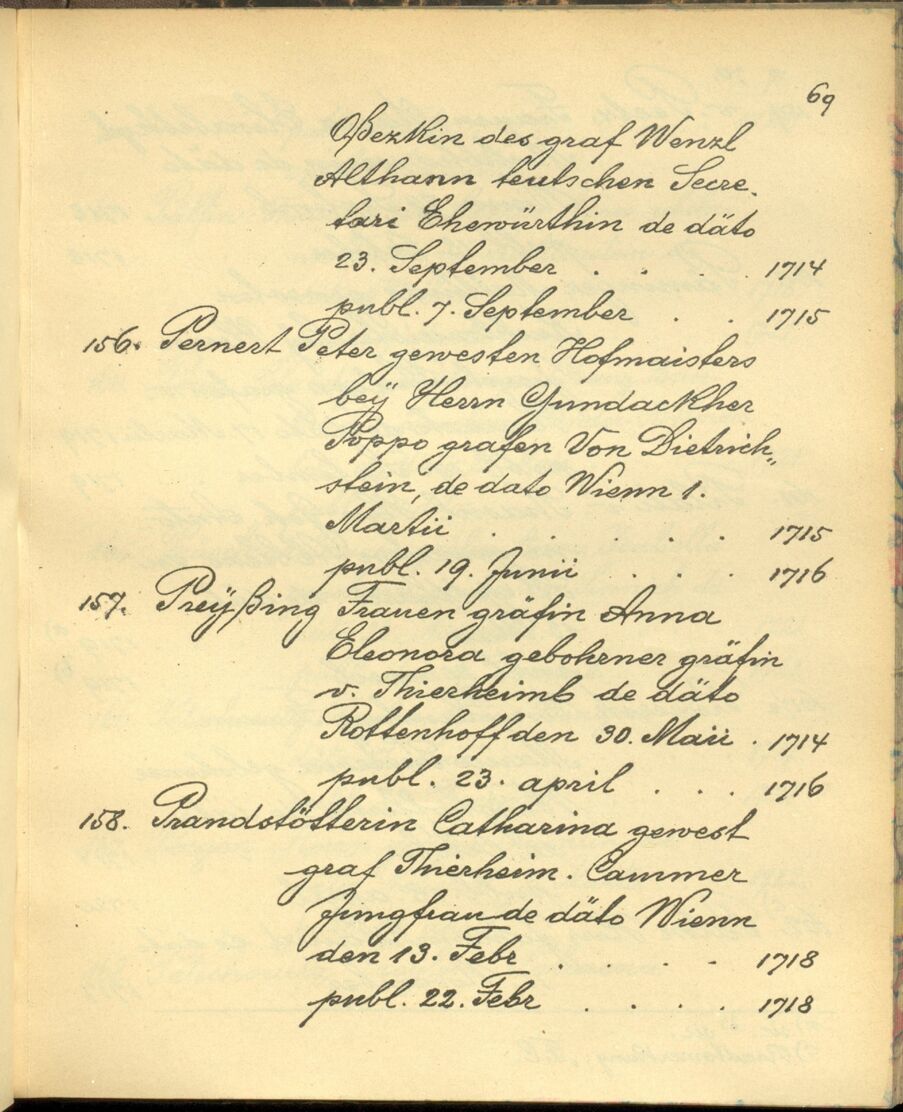 69
des graf Wenzl
Althann teutschen Secre-
tari Ehewürthin de däto
23. September . . . . 1714
publ. 7. September . . 1715
156. Pernert Peter gewesten Hofmaisters
beÿ Herrn Gundackher
Poppo grafen Von Dietrich„
stein, de dato Wienn 1.
Martii . . . . . 1715
publ. 19. Junii . . . . 1716
157. Preÿßing Frauen gräfin Anna
Eleonora gebohrner gräfin
v. Thierheimb de däto
Rottenhoff den 30. Maii . 1714
publ. 23. april . . . 1716
158. Prandstötterin Catharina gewest
graf Thierheim. Cammer
Jungfrau de däto Wienn
den 13. Febr . . . 1718
publ. 22. Febr . . . . 1718